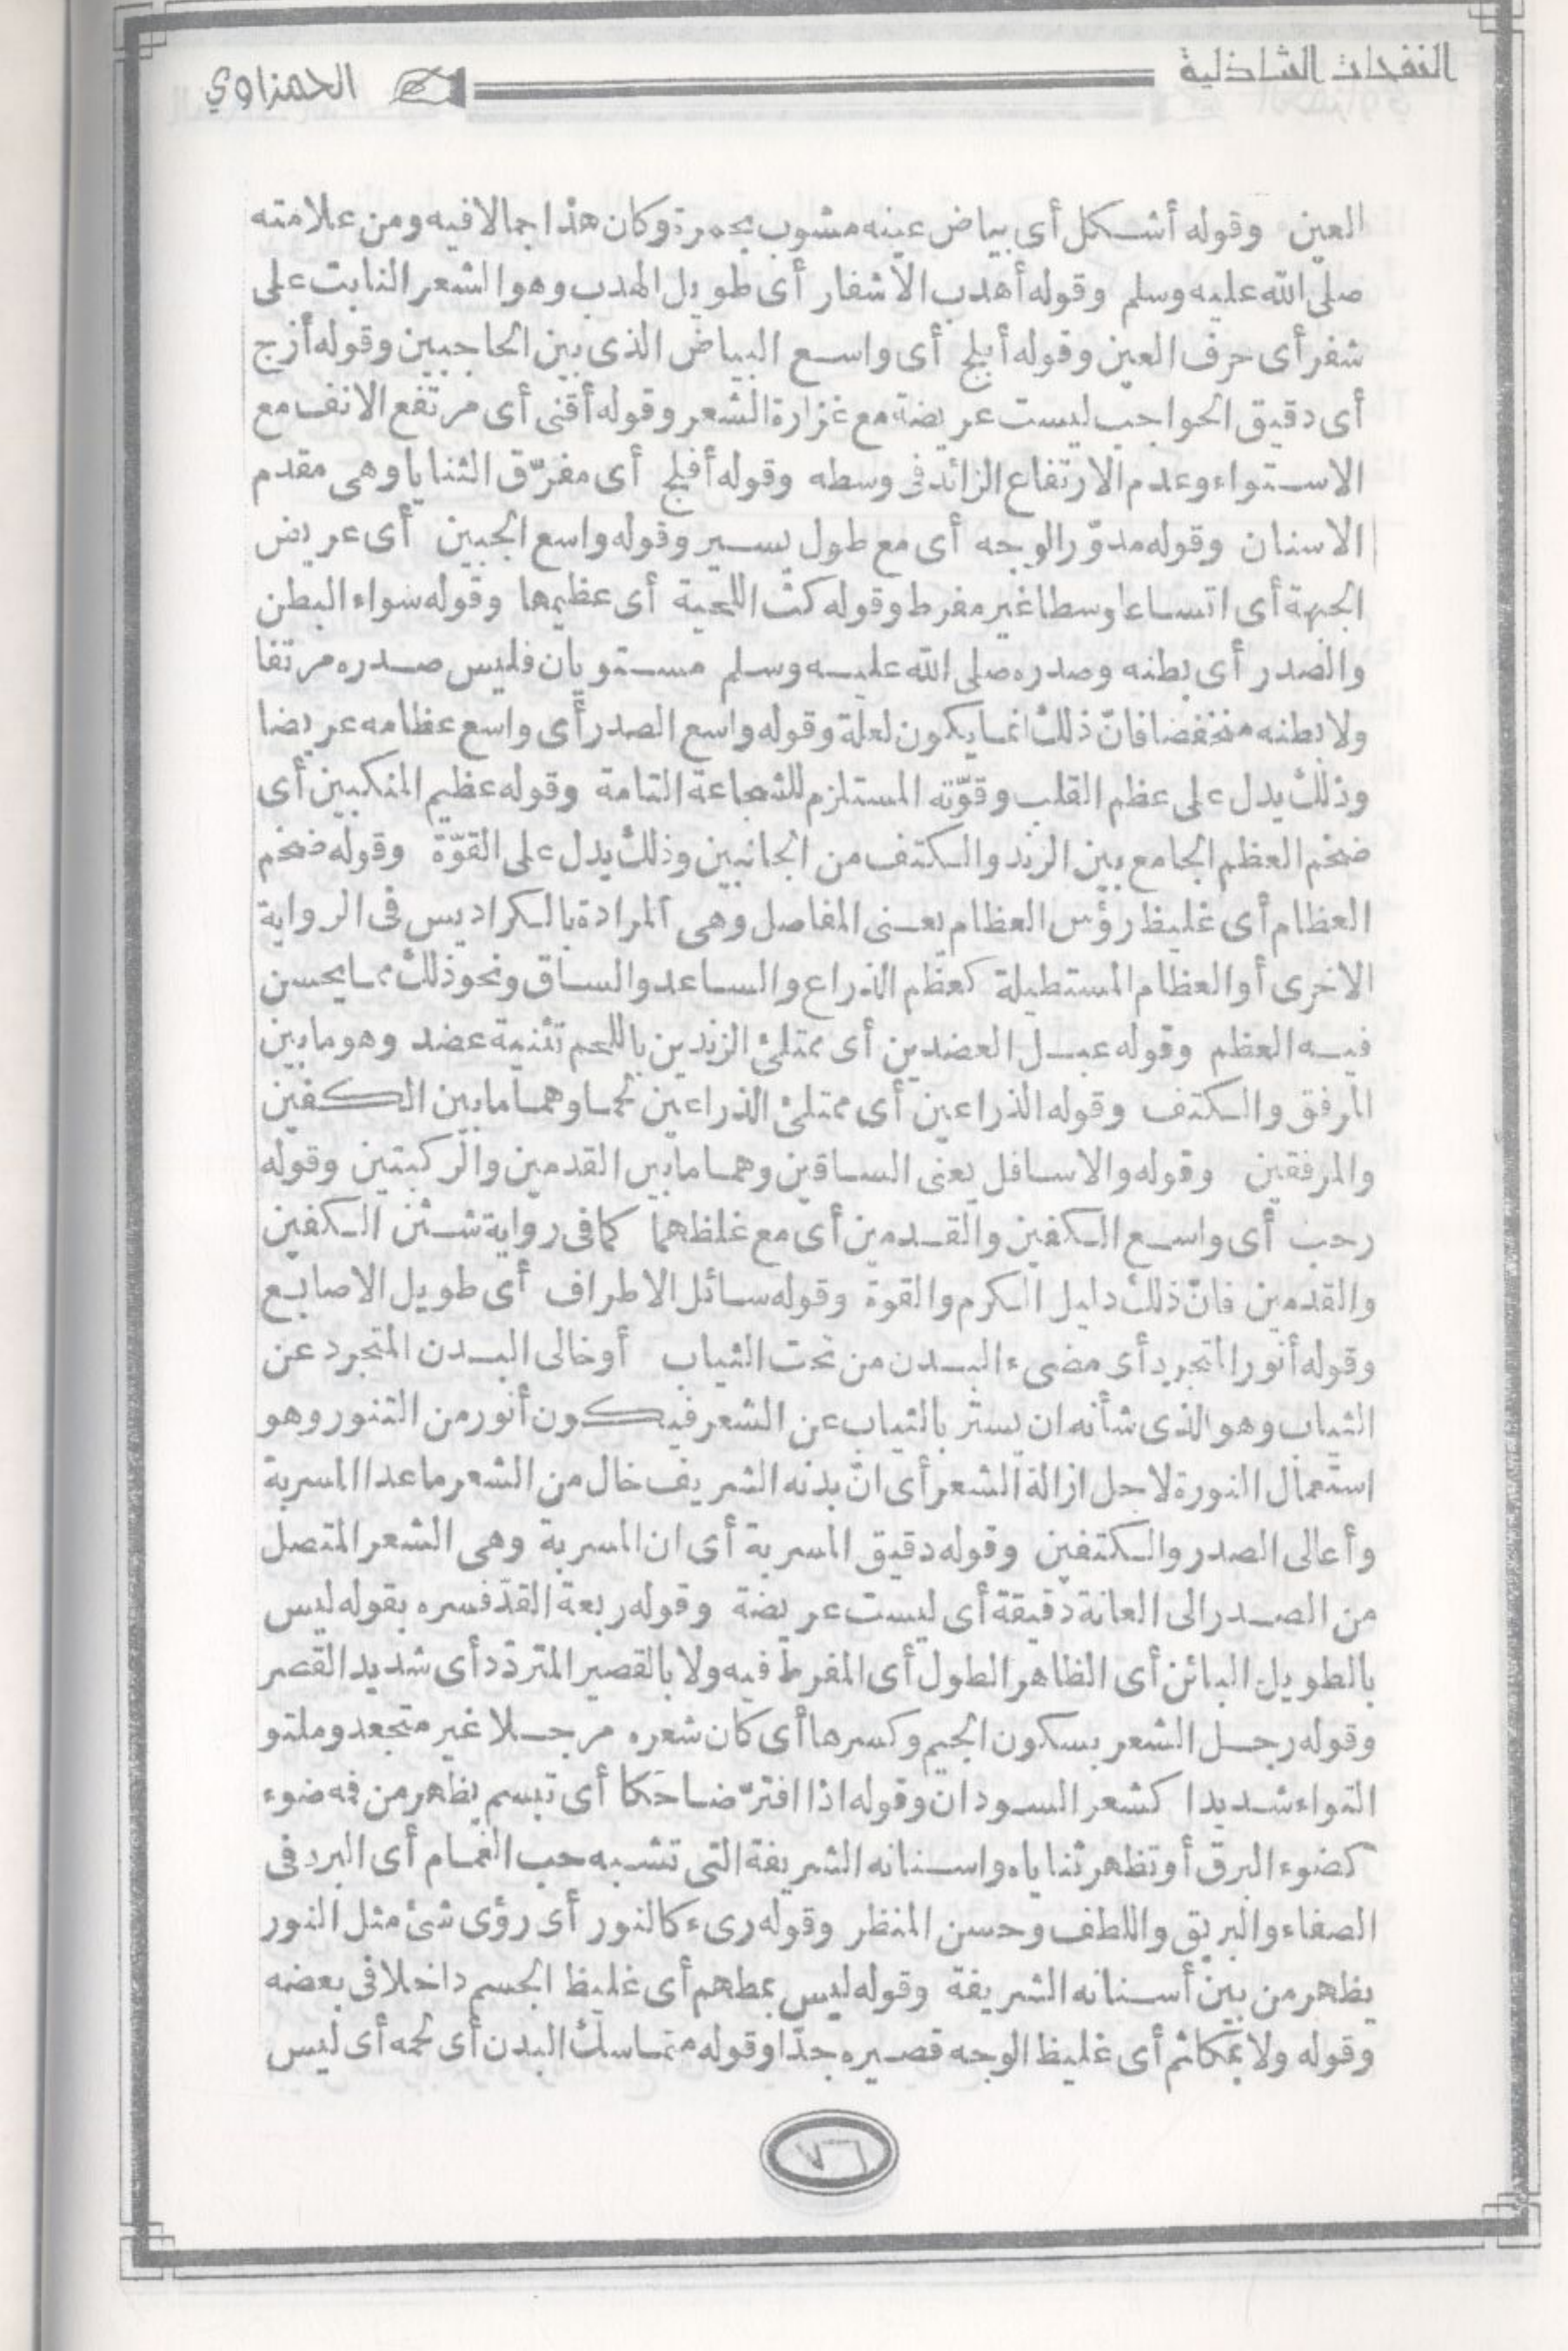 النفحات الشاذلية
الحمزاوي
العين وقوله أشكل أى بياض عينه مشوب بحمرة وكان هذا جمالا فيه ومن علامته
صلى الله عليه وسلم وقوله أهدب الأشفار أى طويل الهدب وهو الشعر النابت على
شفر أى حرف العين وقوله أبلج أى واسع البياض الذى بين الحاجبين وقوله أزج
أى دقيق الحواجب ليست عريضة مع غزارة الشعر وقوله أقنى أى مرتفع الانف مع
الاستواء وعدم الارتفاع الزائد فى وسطه وقوله أفلج أى مفرّق الثنايا وهى مقدم
الاسنان وقوله مدوّر الوجه أى مع طول يسير وقوله واسع الجبين أى عريض
الجبهة أى اتساعا وسطا غير مفرط وقوله كث اللحية أى عظيمها وقوله سواء البطن
والصدر أى بطنه وصدره صلى الله عليه وسلم مستويان فليس صدره مرتفا
ولا بطنه منخفضا فانّ ذلك انما يكون لعلة وقوله واسع الصدر أى واسع عظامه عريضا
وذلك يدل على عظم القلب وقوّته المستلزم للشجاعة التامة وقوله عظيم المنكبين أى
ضخم العظم الجامع بين الزند والكتف من الجانبين وذلك يدل على القوّة وقوله ضخم
العظام أى غليظ رؤس العظام يعنى المفاصل وهى المرادة بالكراديس فى الرواية
الاخرى أو العظام المستطيلة كعظم الذراع والساعد والساق ونحو ذلك مما يحسن
فيه العظم وقوله عبل العضدين أى ممتلئ الزندين باللحم تثنية عضد وهو ما بين
المرفق والكتف وقوله الذراعين أى ممتلئ الذراعين لحما وهما ما بين الكفين
والمرفقين وقوله والاسافل يعنى الساقين وهما ما بين القدمين والركبتين وقوله
رحب أى واسع الكفين والقدمين أى مع غلظهما كما فى رواية شثن الكفين
والقدمين فانّ ذلك دليل الكرم والقوة وقوله سائل الاطراف أى طويل الاصابع
وقوله أنور المتجرد أى مضىء البدن من تحت الثياب أو خالى البدن المتجرد عن
الثياب وهو الذى شأنه ان يستر بالثياب عن الشعر فيكون أنور من التنور وهو
استعمال النورة لاجل ازالة الشعر أى انّ بدنه الشريف خال من الشعر ما عدا المسربة
وأعالى الصدر والكتفين وقوله دقيق المسربة أى ان المسربة وهى الشعر المتصل
من الصدر الى العانة دقيقة أى ليست عريضة وقوله ربعة القدّ فسره بقوله ليس
بالطويل البائن أى الظاهر الطول أى المفرط فيه ولا بالقصير المتردّد أى شديد القصر
وقوله رجل الشعر بسكون الجيم وكسرها أى كان شعره مرجلا غير متجعد وملتو
التواء شديدا كشعر السودان وقوله اذا افترّ ضاحكا أى تبسم يظهر من فمه ضوء
كضوء البرق أو تظهر ثناياه واسنانه الشريفة التى تشبه حب الغمام أى البرد فى
الصفاء والبريق واللطف وحسن المنظر وقوله رىء كالنور أى رؤى شئ مثل النور
يظهر من بين أسنانه الشريفة وقوله ليس بمطهم أى غليظ الجسم داخلا فى بعضه
وقوله ولا بمكاثم أى غليظ الوجه قصيره جدّا وقوله متماسك البدن أى لحمه أى ليس
٧٦